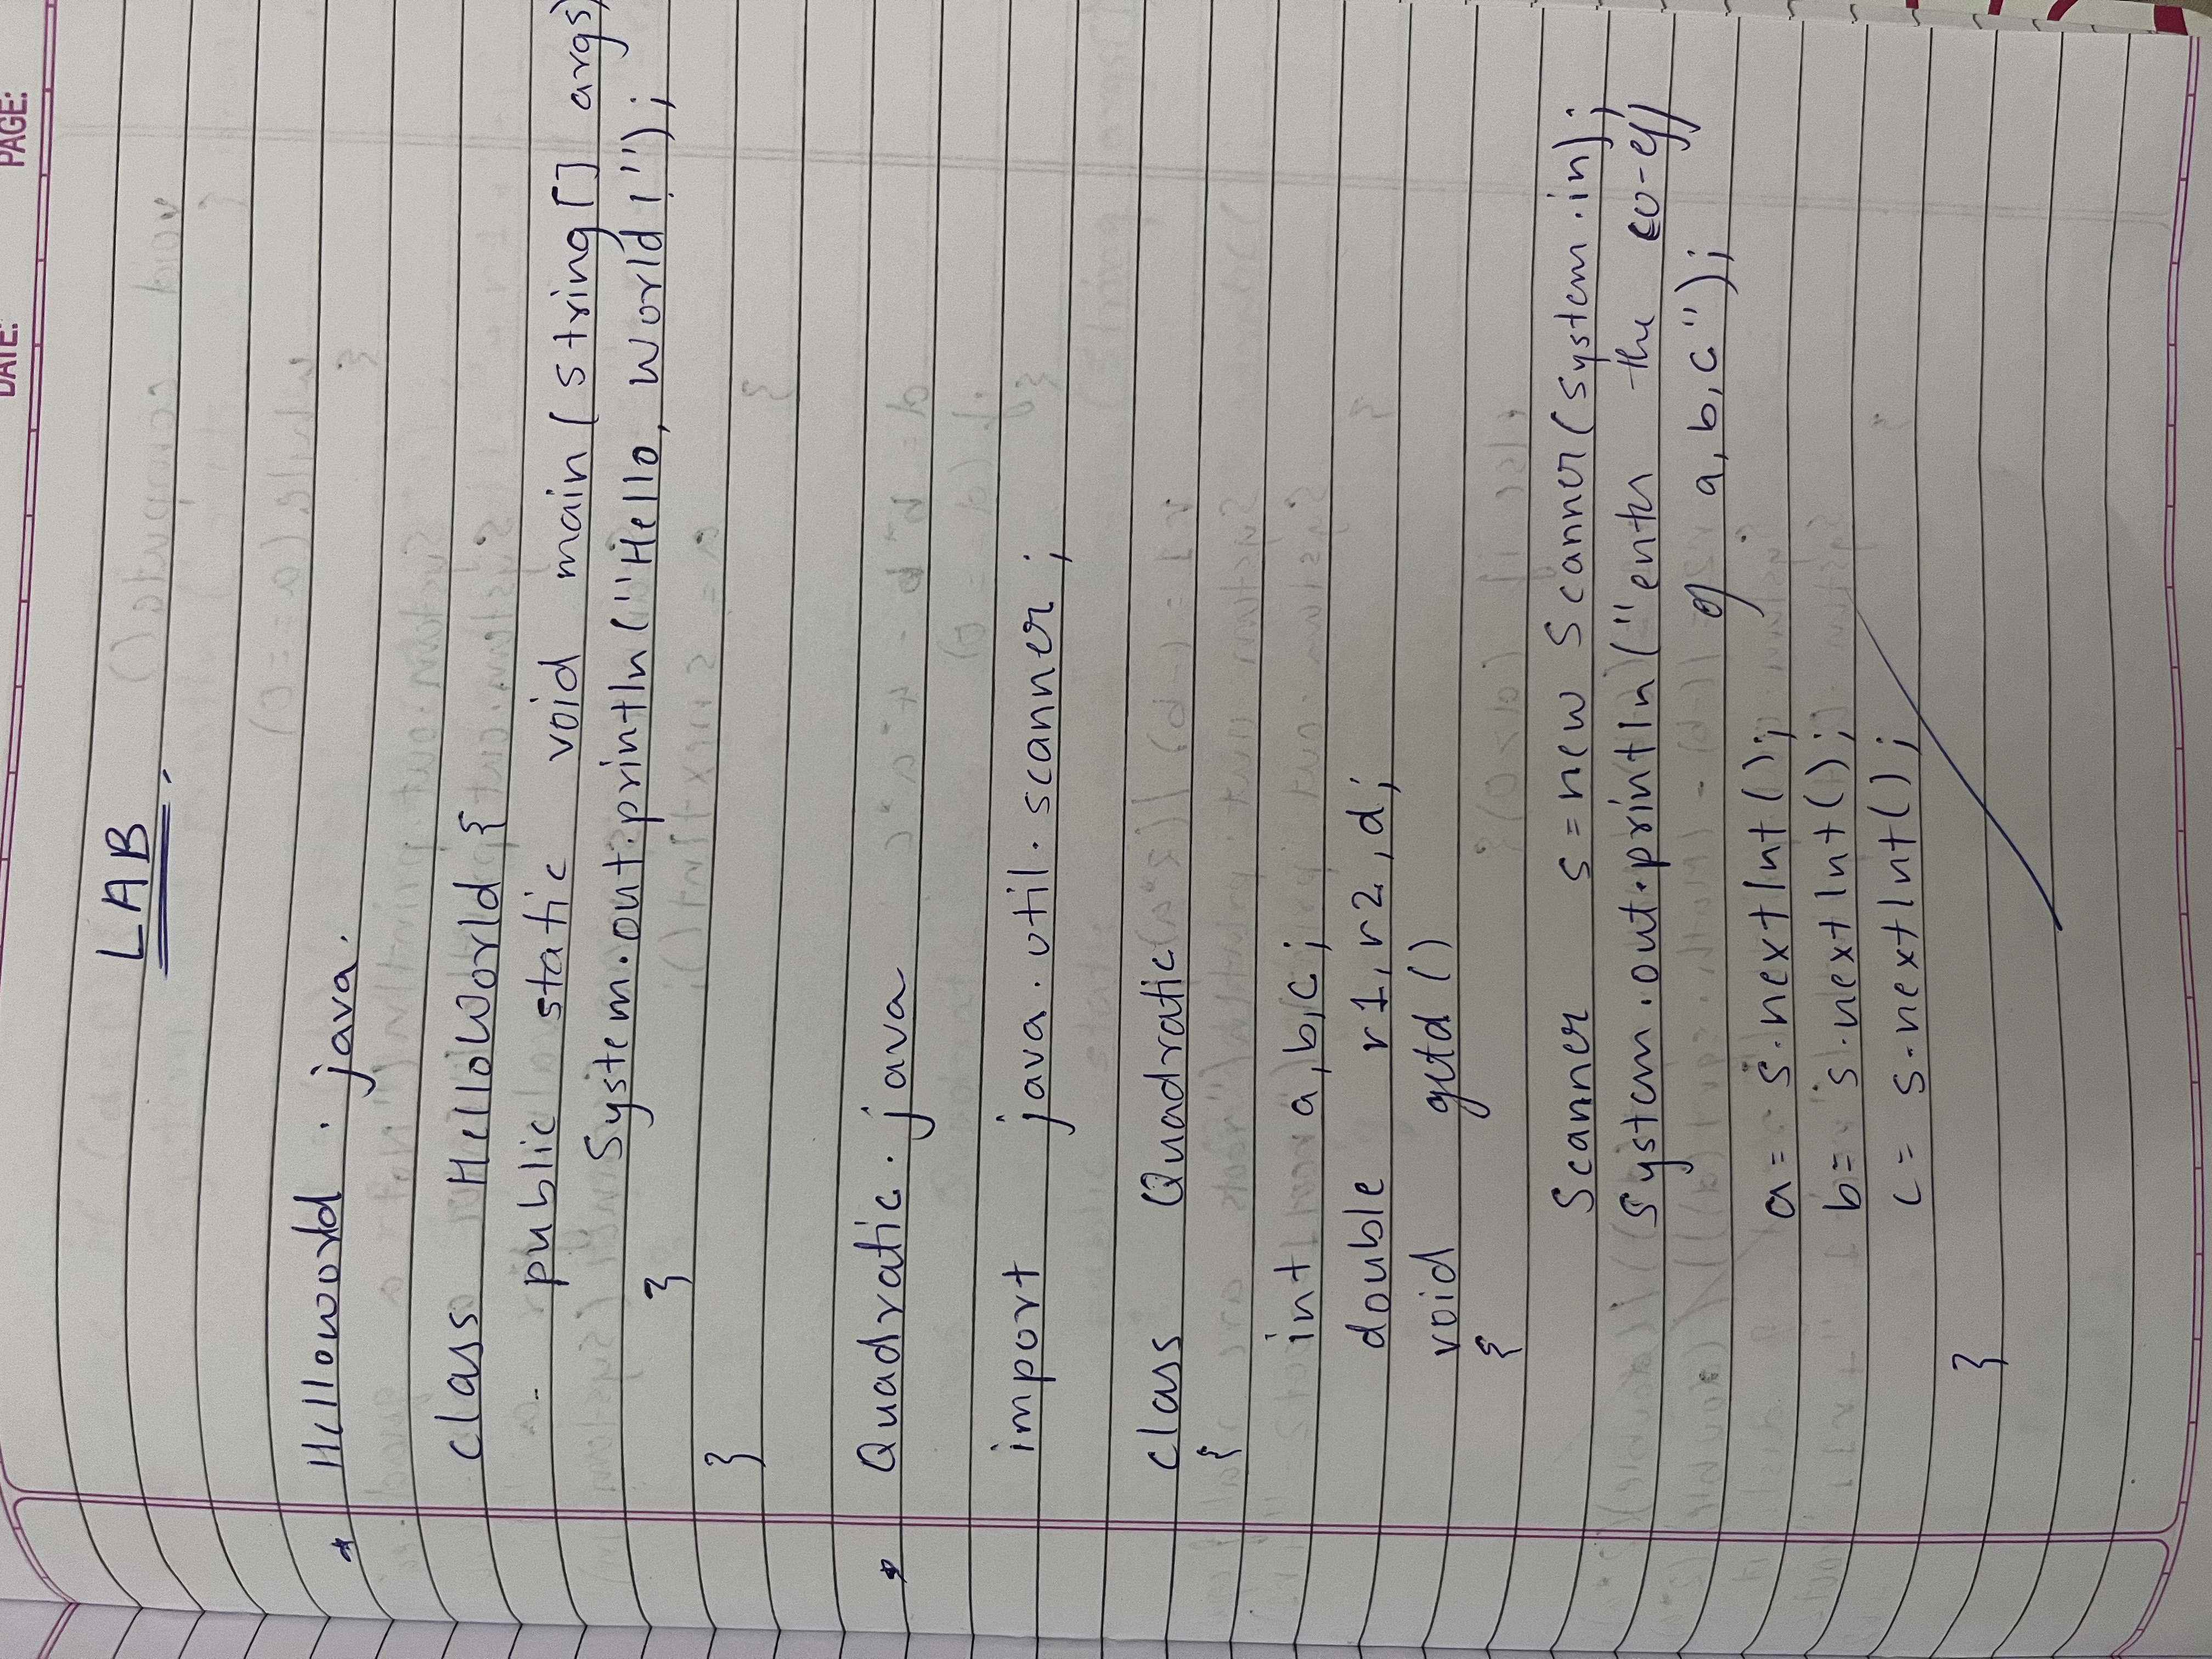 DATE:
PAGE:
LAB
Helloworld . java.
class HelloWorld {
public static void main (String[] args)
System.out.println("Hello, World!");
}
}
Quadratic . java
import java.util.scanner;
class Quadratic
{
int a,b,c;
double r1,r2,d;
void getd()
{
Scanner s=new Scanner(System.in);
System.out.println("enter the co-eff
of a,b,c");
a= s.nextInt();
b= s.nextInt();
c= s.nextInt();
}